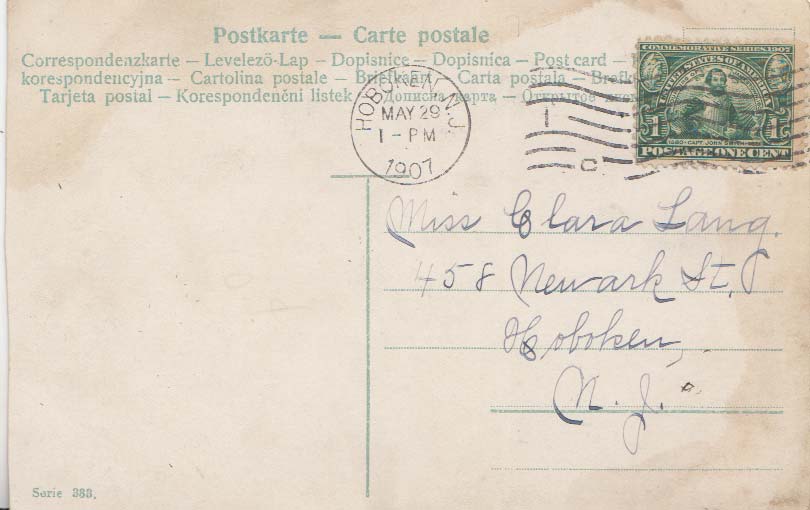 Postkarte — Carte postale
Correspondenzkarte – Levelező-Lap – Dopisnice – Dopisnica – Post card –
korespondencyjna – Cartolina postale – Briefkaart – Carta postala –
Tarjeta postal – Korespondenčni listek – Дописна карта – Открытое
HOBOKEN, N.J.
MAY 29
1 - PM
1907
1
C
COMMEMORATIVE SERIES 1907
UNITED STATES OF AMERICA
1 1
1580 CAPT. JOHN SMITH 1631
POSTAGE ONE CENT
Miss Clara Lang.
458 Newark St,
Hoboken,
N. J.
Serie 383.